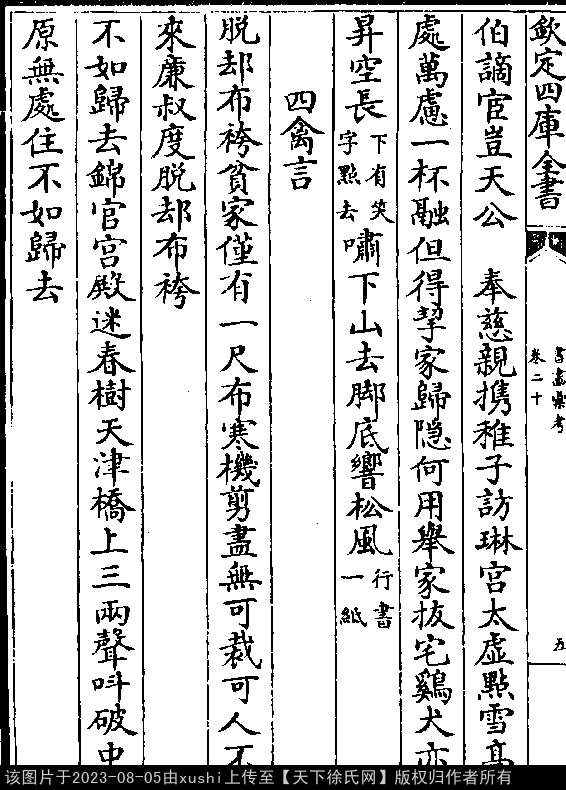 欽定四庫全書
卷二十
五
伯謫宦豈天公　奉慈親携稚子訪琳宫太虚點雪髙
處萬慮一杯融但得挈家歸隐何用舉家抜宅鷄犬亦
昇空長下有笑字點去嘯下山去脚底響松風行書一紙
四禽言
脱却布袴貧家僅有一尺布寒機剪盡無可裁可人不
來廉叔度脱却布袴
不如歸去錦官宫殿迷春樹天津橋上三兩聲呌破中
原無處住不如歸去
该图片于2023-08-05由xushi上传至【天下徐氏网】版权归作者所有